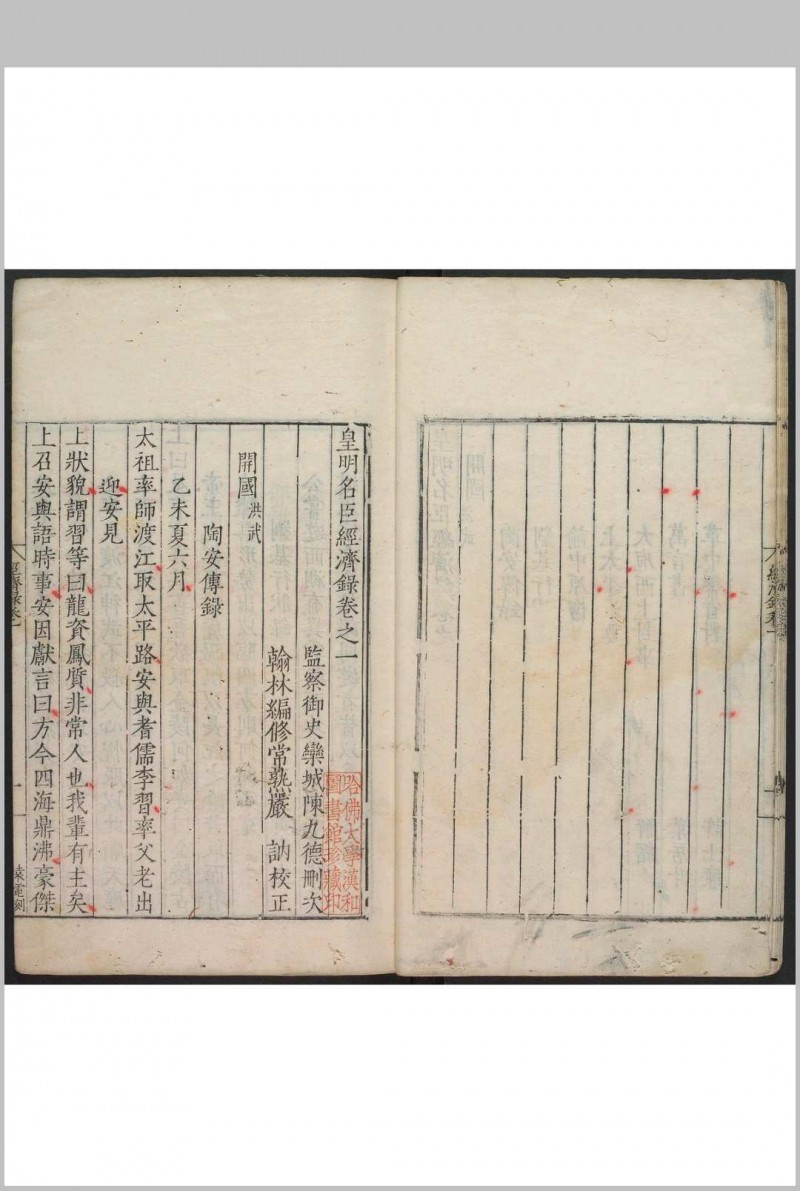 皇明名臣經濟錄卷之一
監察御史欒城陳九德刪次
翰林編修常熟嚴 訥校正
開國 洪武
陶安傳錄
乙未夏六月
太祖率師渡江取太平路安與耆儒李習率父老出
迎安見
上狀貌謂習等曰龍資鳳質非常人也我輩有主矣
上召安與語時事安因獻言曰方今四海鼎沸豪傑
哈佛大學漢和
圖書館珍藏印
經濟錄卷一